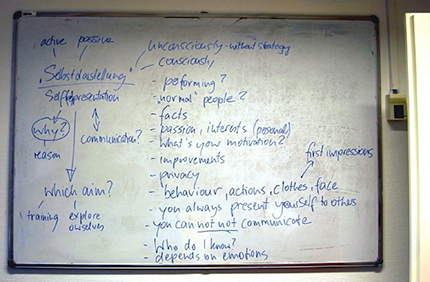 active passive
"Selbstdarstellung"
Selfrepresentation
Why?
reason
communication?
which aim?
training
explore
ourselves
unconsciously - without strategy
consciously
- performing?
- "normal" people?
- facts
- passion, interests (personal)
- what's your motivation?
- improvements
- privacy
first impressions
- behaviour, actions, clothes, face
- you always present yourself to others
- you can not not communicate
- Who do I know?
- depends on emotions